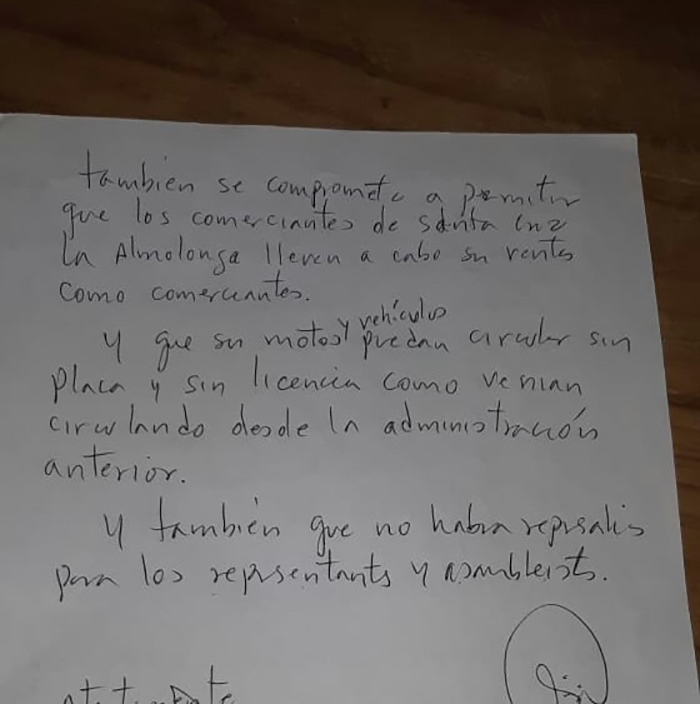 también se compromete a permitir
que los comerciantes de santa cruz
la Almolonga lleven a cabo su ventas
como comerciantes.
y que su motos y vehículos puedan circular sin
placa y sin licencia como venian
circulando desde la administración
anterior.
y también que no habra represalis
para los reprsentants y asambleists.
atentamente